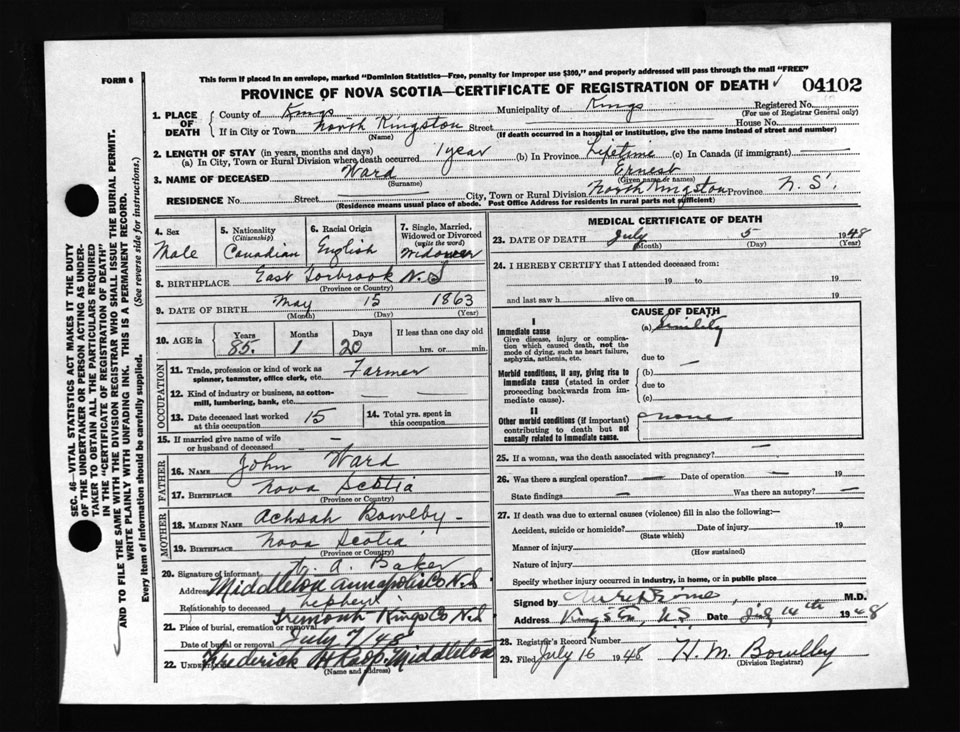 FORM 6
This form if placed in an envelope, marked "Dominion Statistics—Free, penalty for improper use $300," and properly addressed will pass through the mail "FREE"
PROVINCE OF NOVA SCOTIA—CERTIFICATE OF REGISTRATION OF DEATH 04102
1. PLACE OF DEATH
County of Kings Municipality of Kings Registered No.
(For use of Registrar General only)
If in City or Town North Kingston Street House No.
(Name) (If death occurred in a hospital or institution, give the name instead of street and number)
2. LENGTH OF STAY (in years, months and days)
(a) In City, Town or Rural Division where death occurred 1 year (b) In Province Lifetime (c) In Canada (if immigrant) —
3. NAME OF DECEASED Ward Ernest
(Surname) (Given name or names)
RESIDENCE No. Street City, Town or Rural Division North Kingston Province N. S.
(Residence means usual place of abode. Post Office Address for residents in rural parts not sufficient)
4. Sex Male
5. Nationality (Citizenship) Canadian
6. Racial Origin English
7. Single, Married, Widowed or Divorced (write the word) Widower
8. BIRTHPLACE East Torbrook N.S
(Province or Country)
9. DATE OF BIRTH May 15 1863
(Month) (Day) (Year)
10. AGE in Years Months Days If less than one day old
85. 1 20 hrs. or min.
OCCUPATION
11. Trade, profession or kind of work as spinner, teamster, office clerk, etc. Farmer
12. Kind of industry or business, as cotton-mill, lumbering, bank, etc. — —
13. Date deceased last worked at this occupation 15
14. Total yrs. spent in this occupation
15. If married give name of wife or husband of deceased —
FATHER
16. NAME John Ward
17. BIRTHPLACE Nova Scotia
(Province or Country)
MOTHER
18. MAIDEN NAME Achsah Bowlby
19. BIRTHPLACE Nova Scotia
(Province or Country)
20. Signature of informant A. Baker
Address Middleton Annapolis Co N.S
Relationship to deceased nephew
21. Place of burial, cremation or removal Tremont Kings Co N.S
Date of burial or removal July 7/48
22. UNDERTAKER Frederick Roop. Middleton
(Name and Address)
MEDICAL CERTIFICATE OF DEATH
23. DATE OF DEATH July 5 1948
(Month) (Day) (Year)
24. I HEREBY CERTIFY that I attended deceased from:
19 to 19
and last saw h alive on 19
CAUSE OF DEATH
I
Immediate cause (a) Senility
Give disease, injury or complication which caused death, not the mode of dying, such as heart failure, asphyxia, asthenia, etc.
due to —
Morbid conditions, if any, giving rise to immediate cause (stated in order proceeding backwards from immediate cause).
(b)
due to
(c)
II
Other morbid conditions (if important) contributing to death but not causally related to immediate cause. none
25. If a woman, was the death associated with pregnancy? —
26. Was there a surgical operation? — Date of operation — 19
State findings — Was there an autopsy? —
27. If death was due to external causes (violence) fill in also the following:—
Accident, suicide or homicide? Date of injury 19
(State which)
Manner of injury
(How sustained)
Nature of injury
Specify whether injury occurred in industry, in home, or in public place
Signed by M.D.
Address Kingston, N.S. Date July 14th 1948
28. Registrar's Record Number
29. Filed July 16 1948 H. M. Bowlby
(Division Registrar)
SEC. 46—VITAL STATISTICS ACT MAKES IT THE DUTY
OF THE UNDERTAKER OR PERSON ACTING AS UNDER-
TAKER TO OBTAIN ALL THE PARTICULARS REQUIRED
IN THE "CERTIFICATE OF REGISTRATION OF DEATH"
AND TO FILE THE SAME WITH THE DIVISION REGISTRAR WHO SHALL ISSUE THE BURIAL PERMIT.
WRITE PLAINLY WITH UNFADING INK. THIS IS A PERMANENT RECORD.
Every item of information should be carefully supplied. (See reverse side for instructions.)